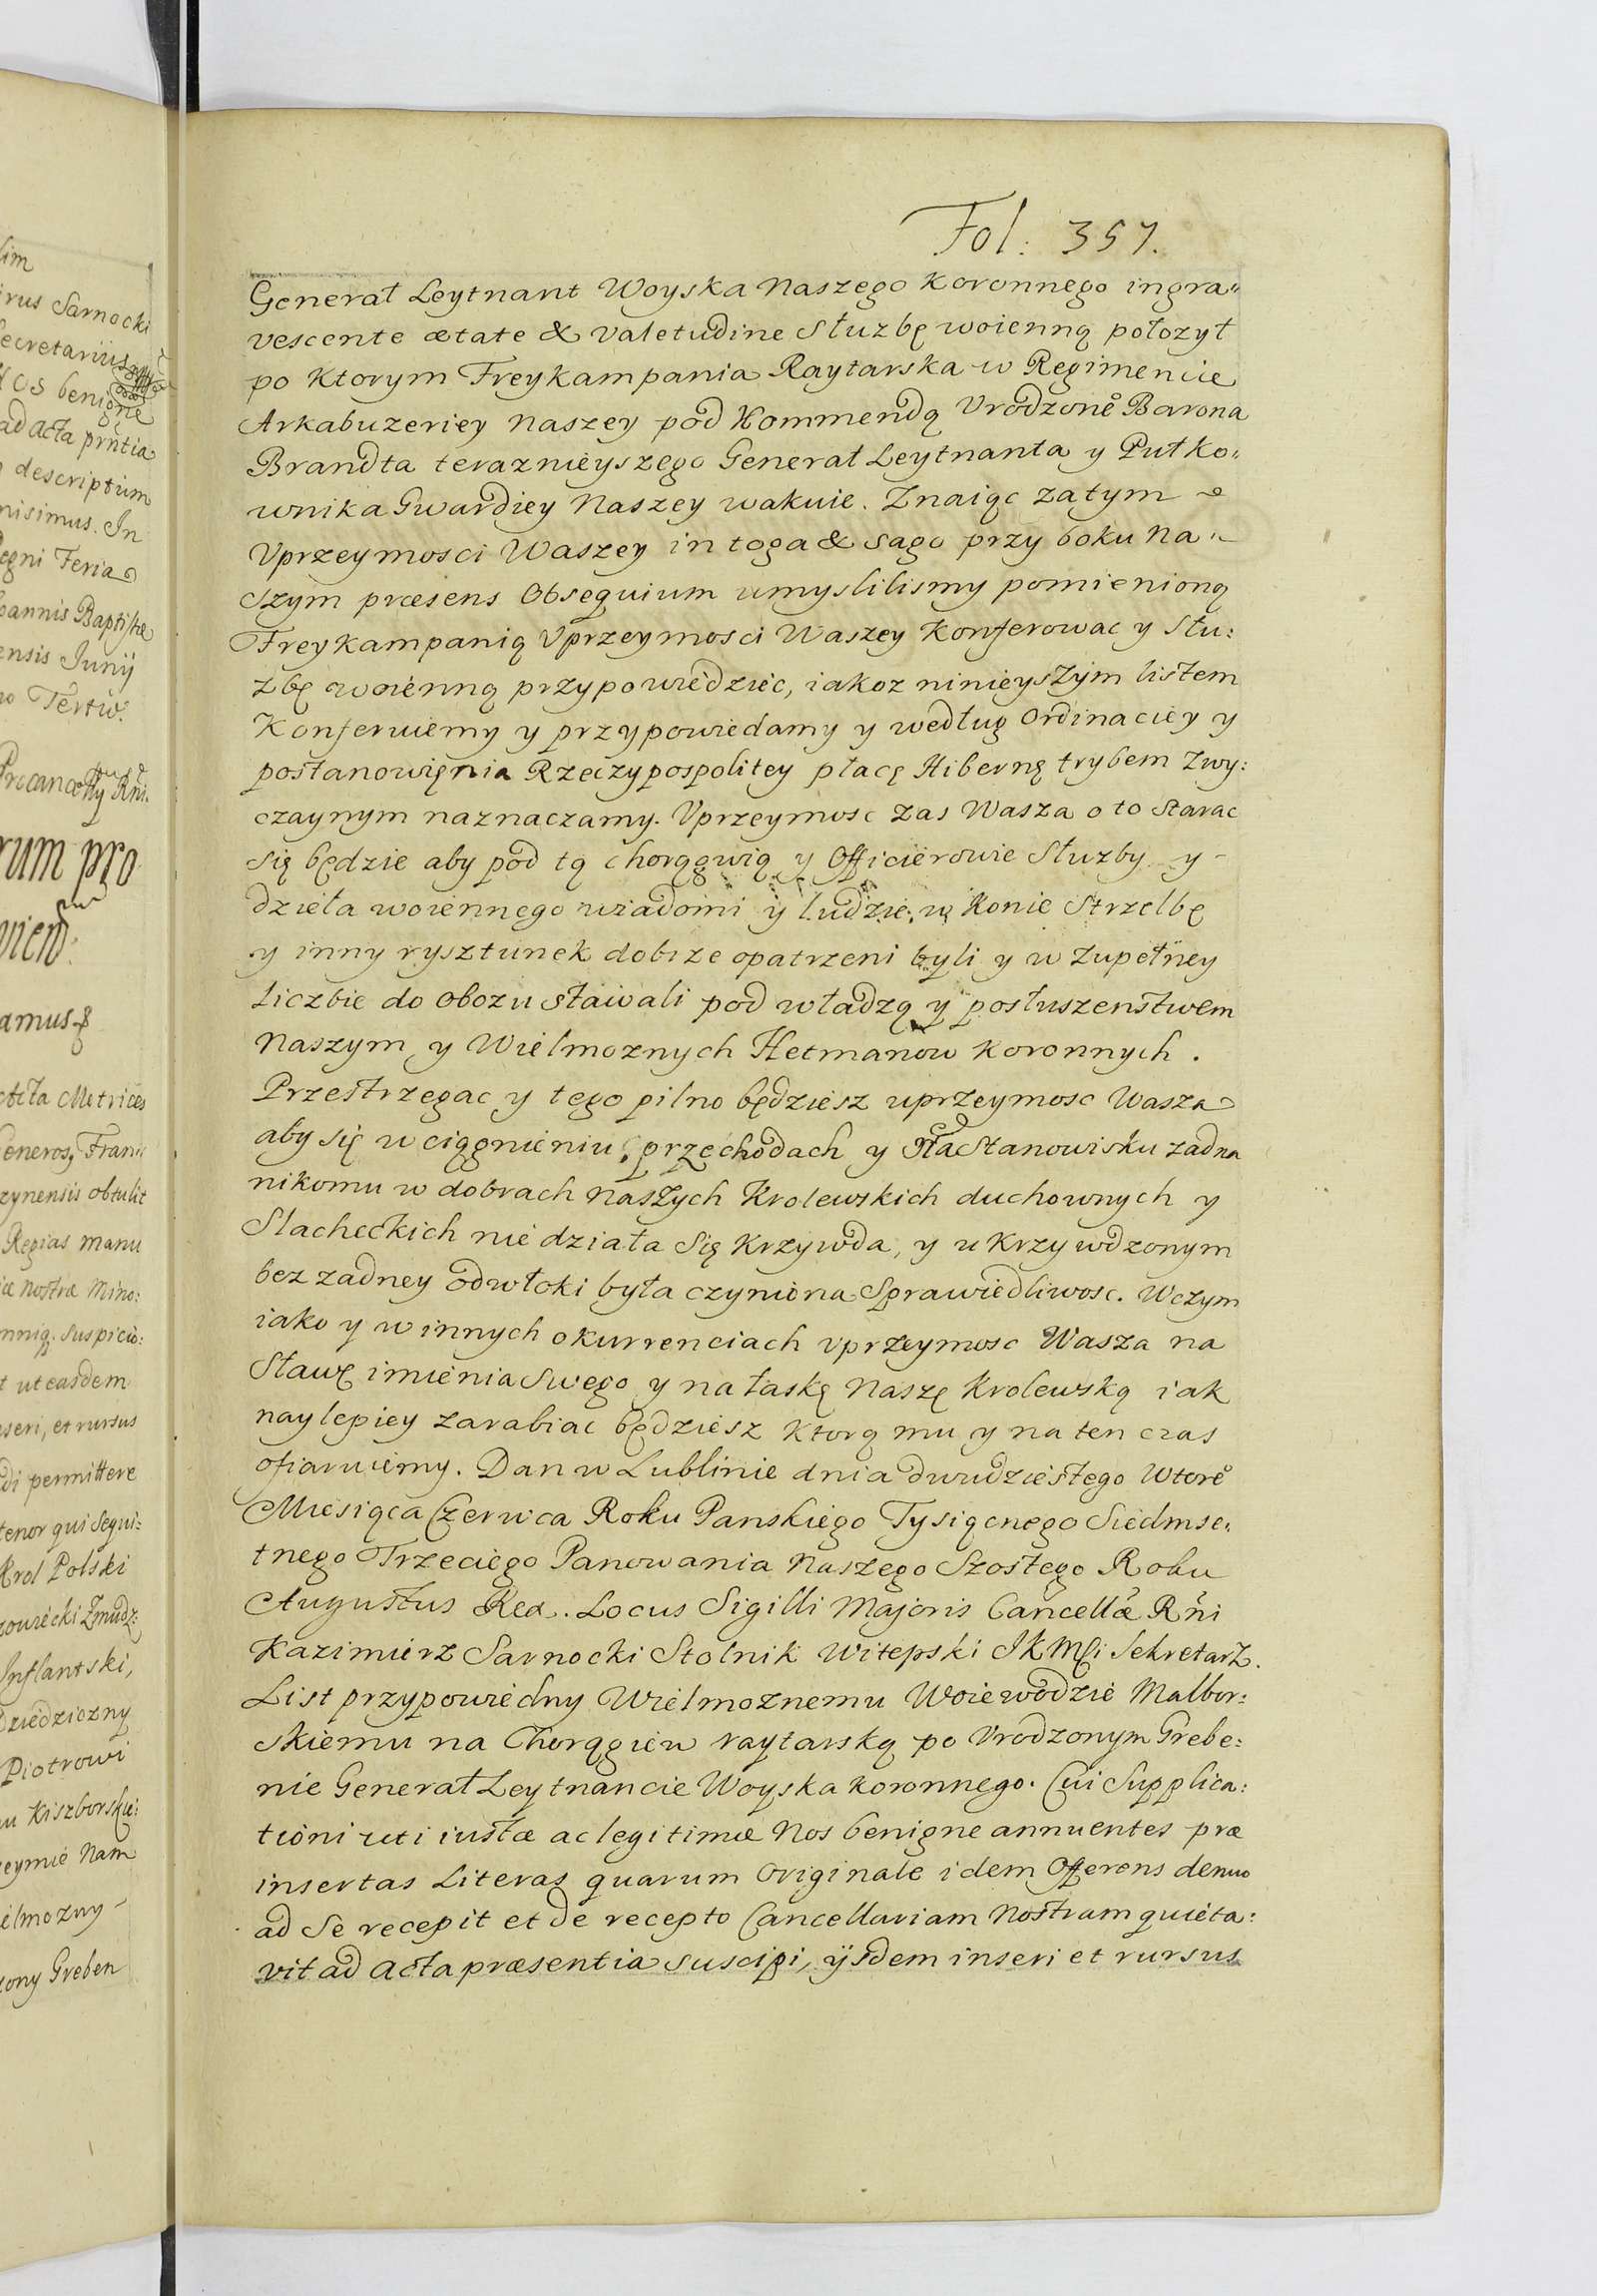 Fol: 357.
Generał Leytnant Woyska Naszego Koronnego ingra„
vescente ætate & valetudine Słuzbę woienną połozył
po Ktorym Freykampania Raytarska w Regimencie
Arkabuzeriey Naszey pod Kommendą Vrodzone° Barona
Brandta teraznieyszego Generał Leytnanta y Pułko„
wnika Gwardiey Naszey wakuie. Znaiąc zatym
Vprzeymosci Waszey in toga & sago przy boku Na„
szym præsens Obsequium umyslilismy pomienioną
Freykampanią Vprzeymosci Waszey Konferowac y Słu:
zbę woienną przypowiedziec, iakoz ninieyszym listem
Konferuiemy y przypowiedamy y według Ordinaciey y
postanowienia Rzeczypospolitey płacę Hibernę trybem Zwy:
czaynym naznaczamy. Vprzeymosc zas Wasza o to Starac
się będzie aby pod tą chorągwią y Officierowie Słuzby y
dzieła woiennego wiadomi y ludzie w Konie Strzelbę
y inny rysztunek dobrze opatrzeni byli y w Zupełney
liczbie do obozu stawali pod władzą y posłuszenstwem
Naszym y Wielmoznych Hetmanow Koronnych.
Przestrzegac y tego pilno będziesz uprzeymosc Wasza
aby się w ciągnieniu, przechodach y Na Stanowisku zadna
nikomu w dobrach Naszych Krolewskich duchownych y
Slacheckich nie działa Się Krzywda, y ukrzywdzonym
bez zadney odwłoki była czyniena Sprawiedliwosc. Wczym
iako y w innych okurrenciach vprzeymosc Wasza na
Sławę imienia Swego y na łaskę Naszę Krolewską iak
naylepiey zarabiac będziesz Ktorą mu y na ten czas
ofiaruiemy. Dan w Lublinie dnia dwudziestego Wtore°
Miesiąca Czerwca Roku Panskiego Tysiącnego Siedmse„
tnego Trzeciego Panowania Naszego Szostego Roku
Augustus Rex. Locus Sigilli Majoris Cancellæ Rni
Kazimierz Sarnocki Stolnik Witepski JKMci Sekretarz.
List przypowiedny Wielmoznemu Woiewodzie Malbor:
skiemu na Chorągiew raytarską po Vrodzonym Grebe:
nie Generał Leytnancie Woyska Koronnego. Cui Supplica:
tioni uti iustæ ac legitimæ Nos benigne annuentes præ
insertas Literas quarum Originale idem Offerens denuo
ad Se recepit et de recepto Cancellariam Nostram quieta:
vit ad Acta præsentia suscipi, ijsdem inseri et rursus